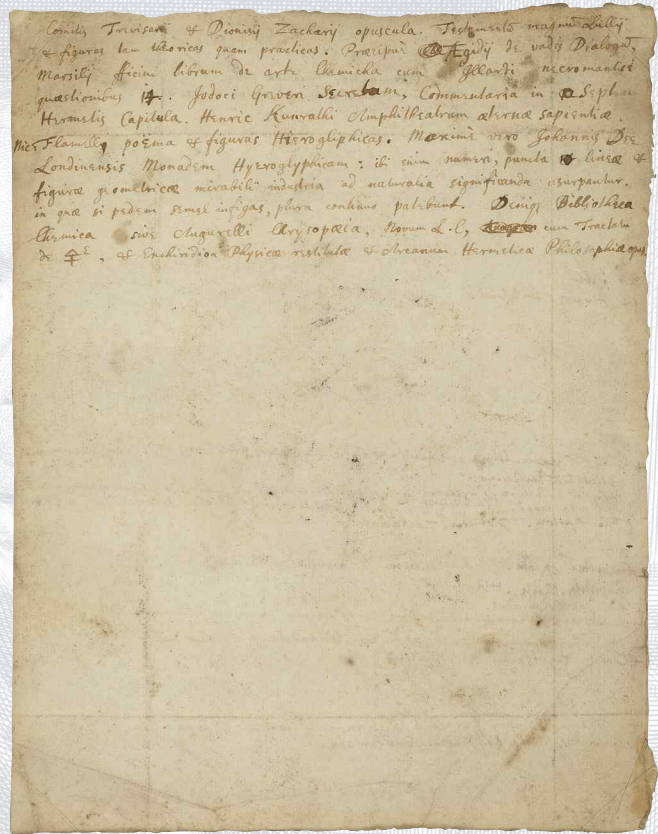 Comitis Trevisani et Dionisij Zacharij opuscula. Testamentū magnū Lullij
& figuras tam theoricas quam practicas. Præcipuè Ægidij de vadis Dialogū,
Marsilij Ficini librum de arte Chemicha cum Illardi necromantici
quæstionibus 14. Jodoci Greveri Secretum, Commentaria in Septem
Hermetis Capitula. Henric Kunrathi Amphitheatrum æternæ sapientiæ.
Nic. Flamelli, poëma & figuras Hierogliphicas. Maximè vero Johannis Dee
Londinensis Monadem Hyeroglyphicam: ibi enim numeri, puncta lineæ &
figuræ geometricæ mirabili industria ad naturalia significanda usurpantur.
in quæ si pedem semel infigas, plura continuo patebunt. Deniq Bibliotheca
Chemica sive Augurelli Chrysopæia, Novum L. C, cum Tractatu
de , & Enchiridion Physicæ restitutæ & Arcanum Hermeticæ Philosophiæ opus.